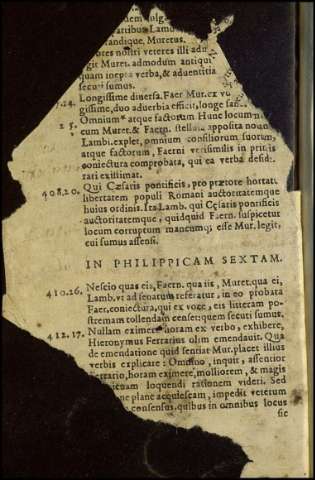 artibus Lambi
randique, Muretus.
nostri veteres illi adu
git Muret. admodum antiqui
quam inepta verba, & aduentitia
secuti sumus.
7.24. Longissime diuersa. Faer Mur. ex vo
gissime, duo aduerbia efficit, longe
25. Omnium atque factorum Hunc locum
cum Muret. & Faern. stellam apposita
Lambi. explet, omnium consiliorum suorum,
atque factorum, Faerni verisimilis in pri
coniectura comprobata, qui ea verba deside
rari existimat.
408.20. Qui Cæsaris pontificis, pro prætore hortatu
libertatem populi Romani auctoritatemque
huius ordinis. Ita Lamb. qui Cęsaris pontificis
auctoritatemque, quidquid Faern. suspicetur
locum corruptum mancumque esse Mur. legit,
cui sumus assensi.
IN PHILIPPICAM SEXTAM.
410.26. Nescio quas eis, Faern. qua iis, Muret. qua ei,
Lamb. vt ad senatum referatur, in eo probata
Faer. coniectura, qui ex voce, eis litteram po-
stremam tollendam censet: quem secuti sumus.
412.17. Nullam eximere horam ex verbo, exhibere,
Hieronymus Ferrarius olim emendauit. Qua
de emendatione quid sentiat Mur. placet illius
verbis explicare: Omnino, inquit, assentior
Ferrario, horam eximere, molliorem, & magis
loquendi rationem videri. Sed
ne plane acquiescam, impedit veterum
consensus, quibus in omnibus locus
sic